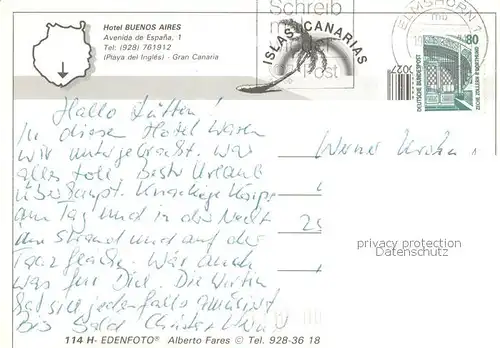 Hotel BUENOS AIRES
Avenida de España, 1
Tel: (928) 761912
(Playa del Inglés) · Gran Canaria
ISLAS CANARIAS
Schreib
mal
der
Post
ELMSHORN 1
mb
80
DEUTSCHE BUNDESPOST
ZECHE ZOLLERN II DORTMUND
0027
Hallo Lütten!
In diesem Hotel waren
wir untergebracht. war
alles toll. Bester Urlaub
überhaupt. Knackige Körper
am Tag und in der Nacht
am Strand und auf der
Tanzfläche. Wär auch
was für Dich. Die Wirtin
hat sich jedenfalls amüsiert
Bis bald
Werner
privacy protection
Datenschutz
114 H- EDENFOTO® Alberto Fares © Tel. 928-36 18